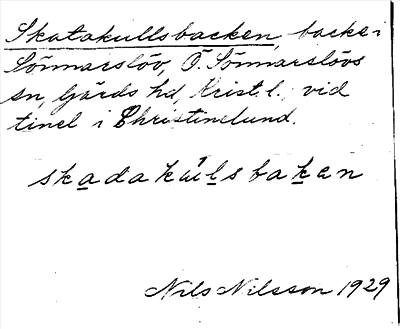 Skatakullsbacken, backe i
Sönnarslöv, Ö. Sönnarslövs
sn, Gärds hd, Krist. l., vid
tinel i Christinelund.
skadakulsbaken
Nils Nilsson 1929